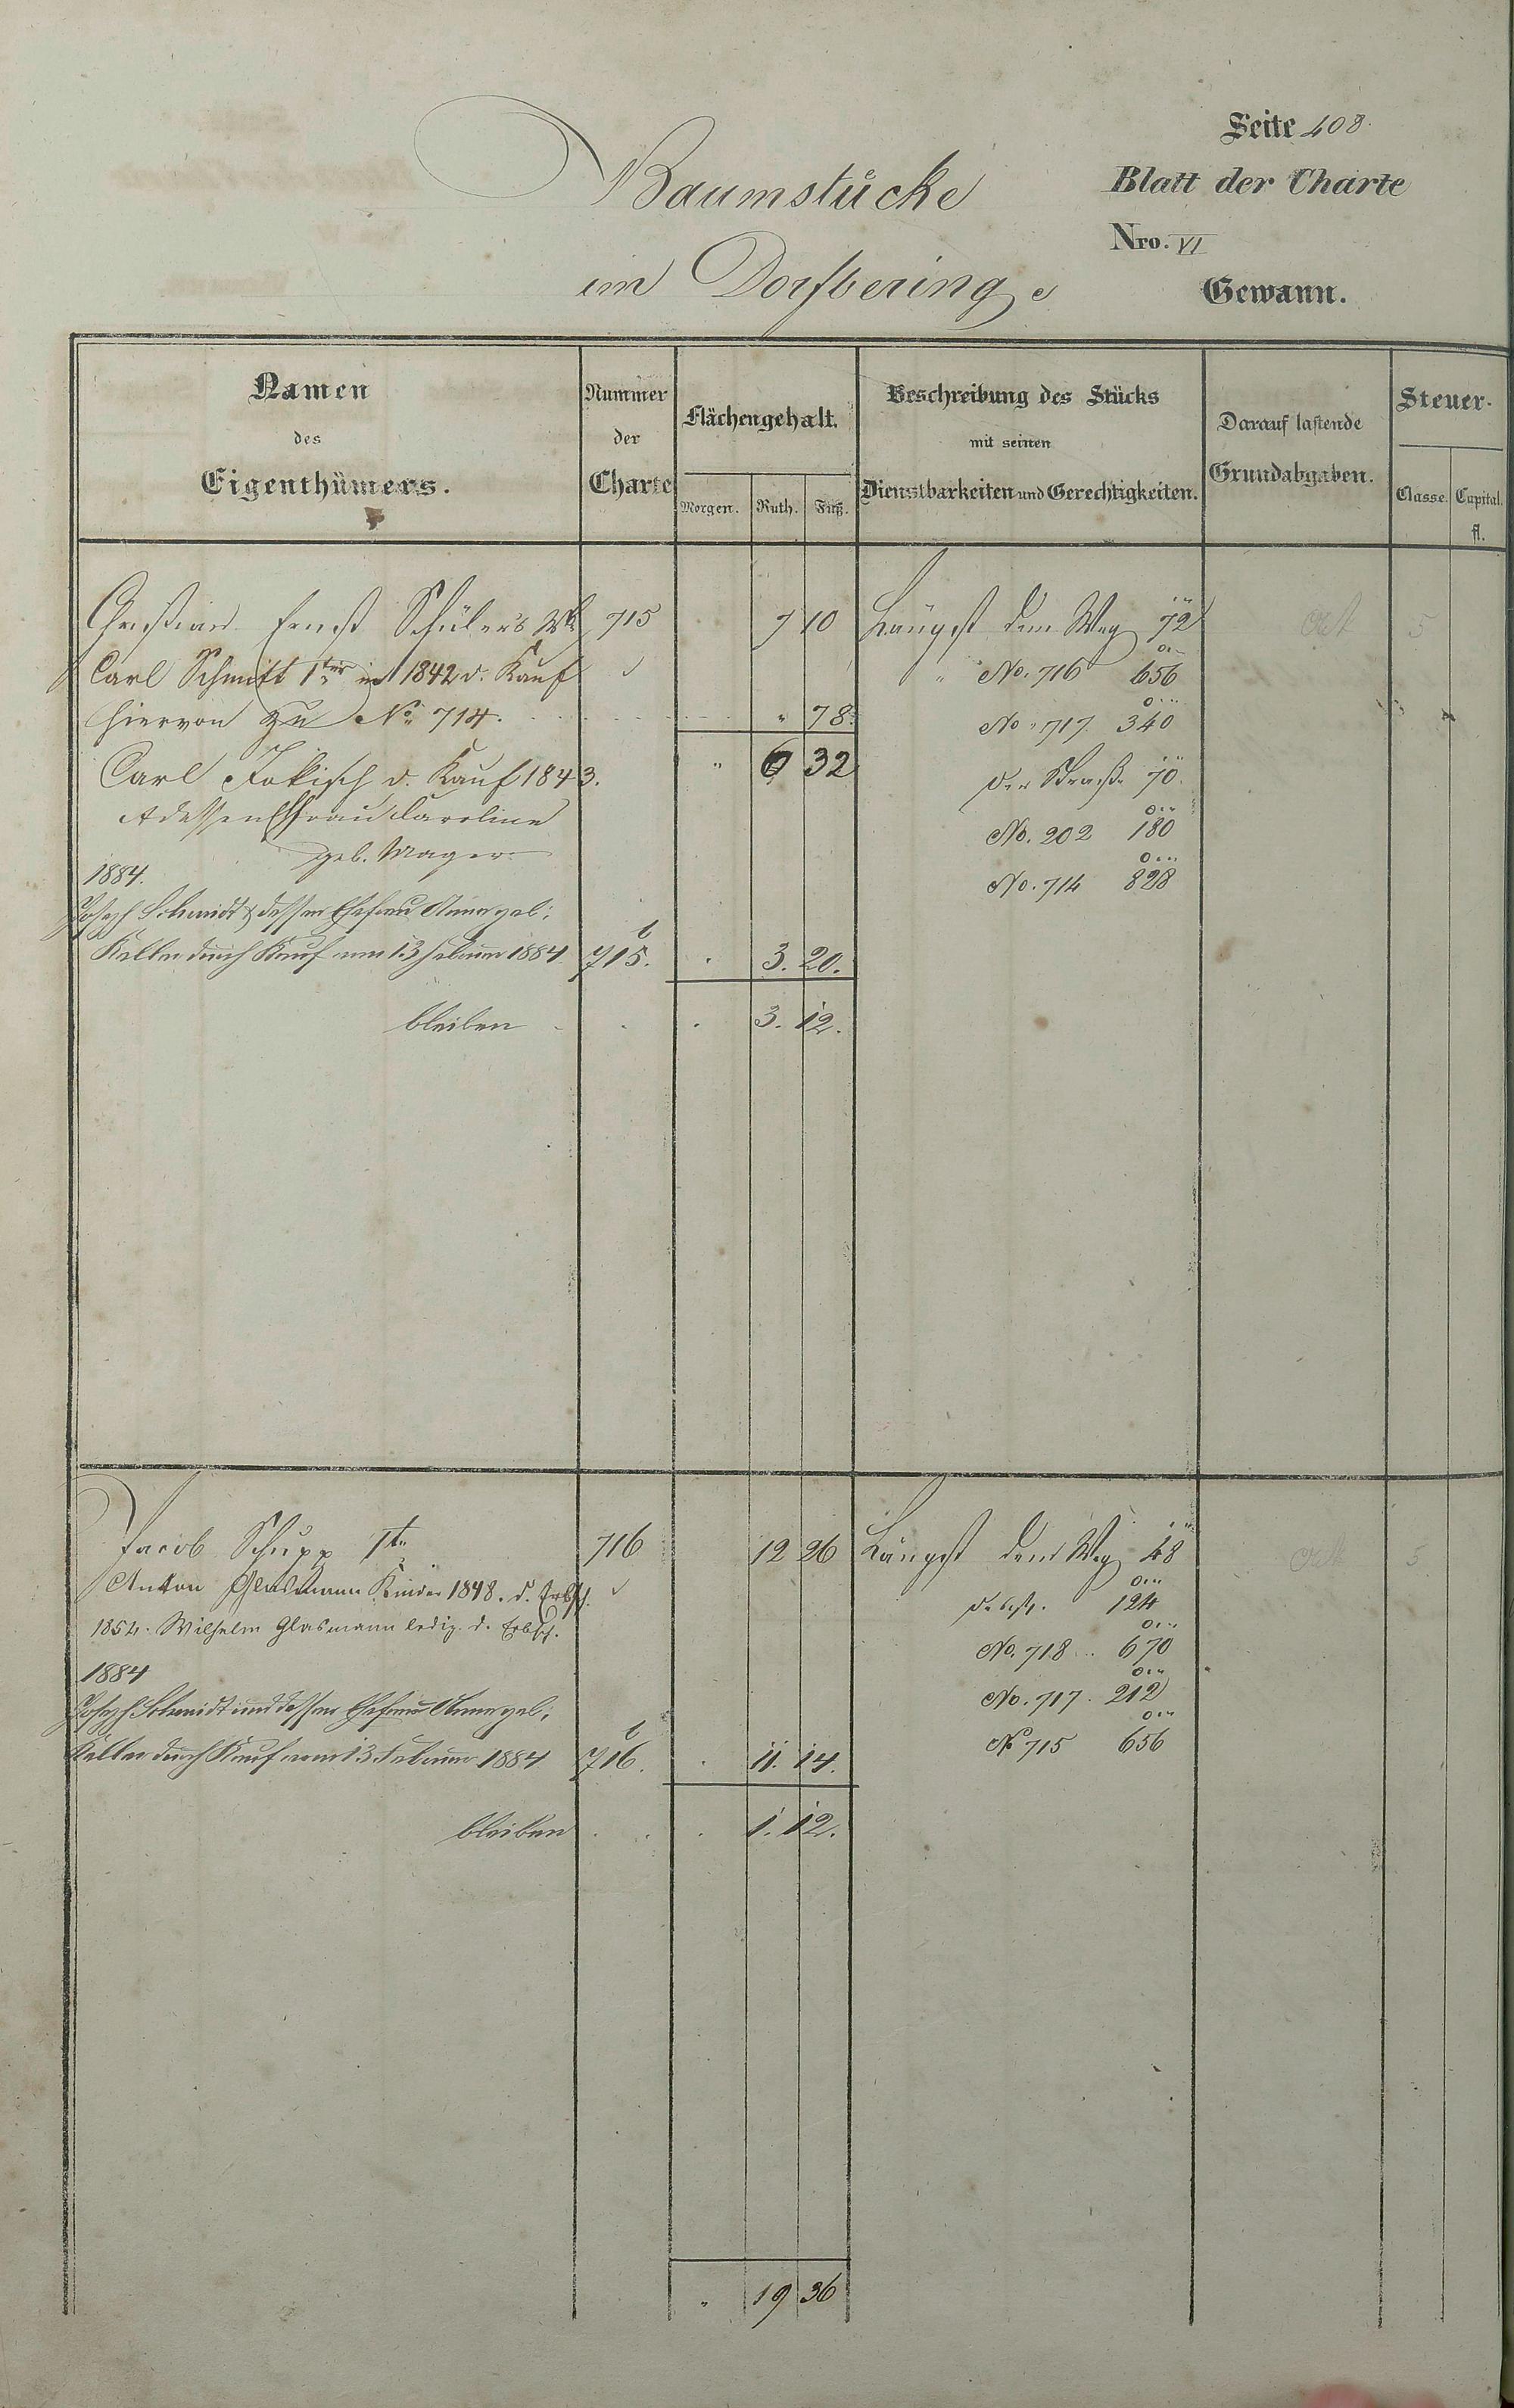 Seite 408.
Baumstücke
Blatt der Charte
Nro. VI
im Dorfberinge
Gewann.
Namen des Eigenthümers.
Nummer der Charte
Flächengehalt.
Morgen. Ruth. Fuß.
Beschreibung des Stücks mit seinen Dienstbarkeiten und Gerechtigkeiten.
Darauf lastende Grundabgaben.
Steuer-
Classe. Capital. fl.
Christian Ernst Schüler's Wb 715 7 10 Längst dem Weg 72 5
Carl Schmitt 1ter in 1842 d. Kauf " No. 716 656
hiervon zu No. 714. " 78. No. 717 340
Carl Jokisch d. Kauf 1843. " 6 32 der Straße 70.
dessen Ehefrau Caroline No. 202 180
geb. Mager
1884. No. 714 828
Joseph Schmidt & dessen Ehefrau Anna geb.
Keller durch Kauf vom 13 Februar 1884 715. 3. 20.
bleiben 3. 12.
Jacob Schupp 1te 716 12 26 Längst dem Weg 48 5
Anton Glasmann Kinder 1848. d. Erbsch. 124
1854. Wilhelm Glasmann ledig. d. Erbsch. No. 718 670
1884 No. 717. 212
Joseph Schmidt und dessen Ehefrau Anna geb.
No 715 656
Keller durch Kauf vom 13. Februar 1884 716. 11. 14.
bleiben 1. 12.
" 19 36